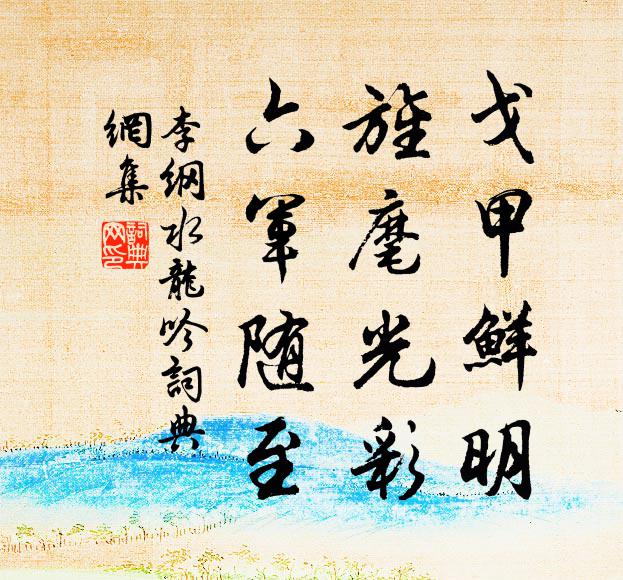 戈甲鮮明
旌麾光彩
六軍随至
李綱水龍吟詞典
網集
詞典
网印